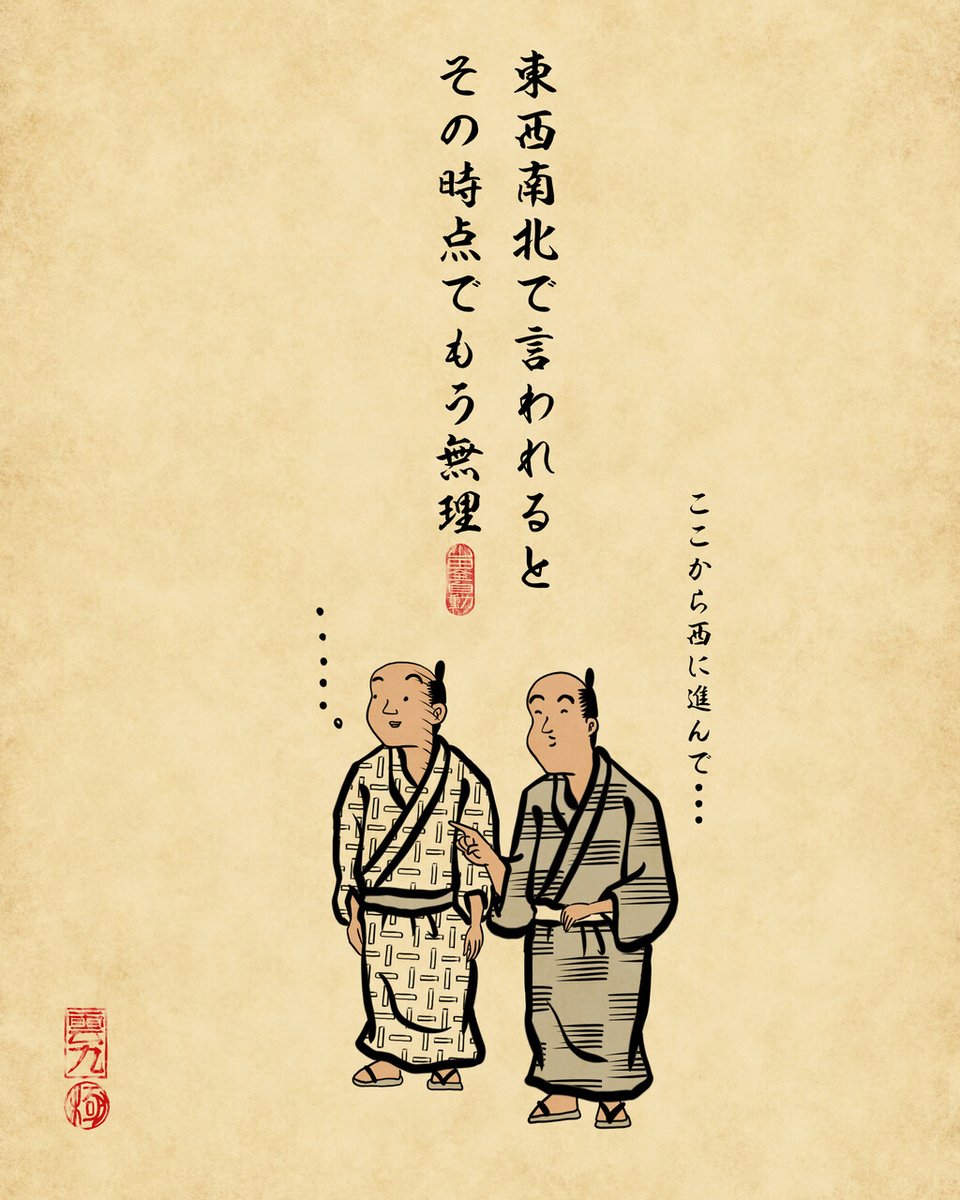 東西南北で言われると
その時点でもう無理
ここから西に進んで・・・
・・・・・。